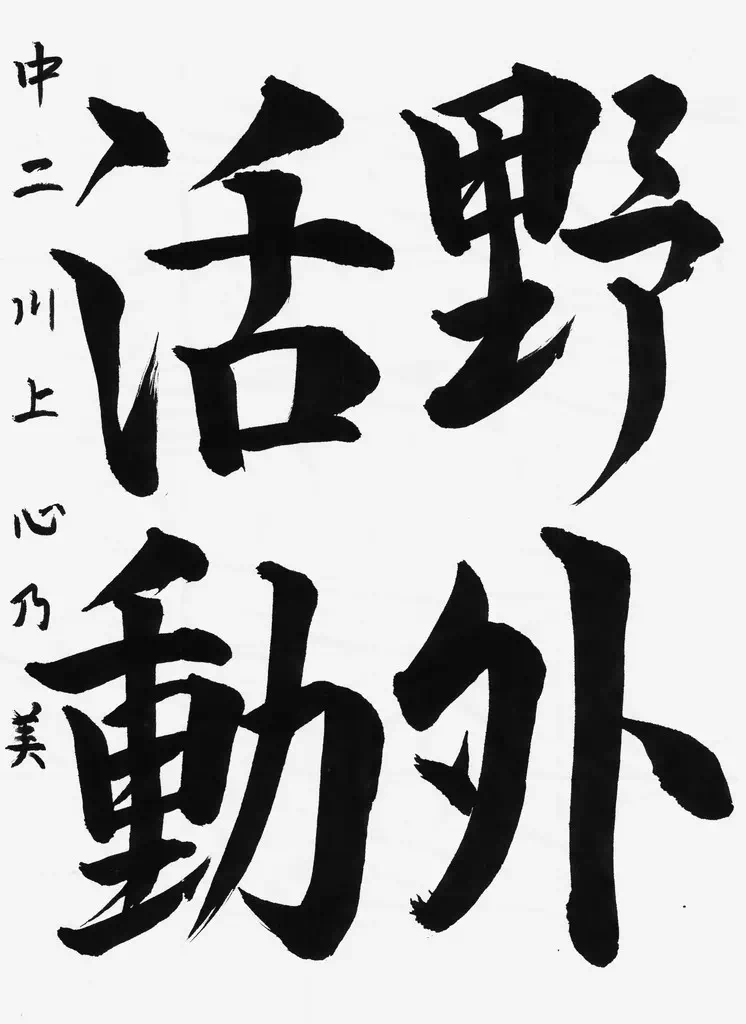 野外
活動
中二 川上 心乃美